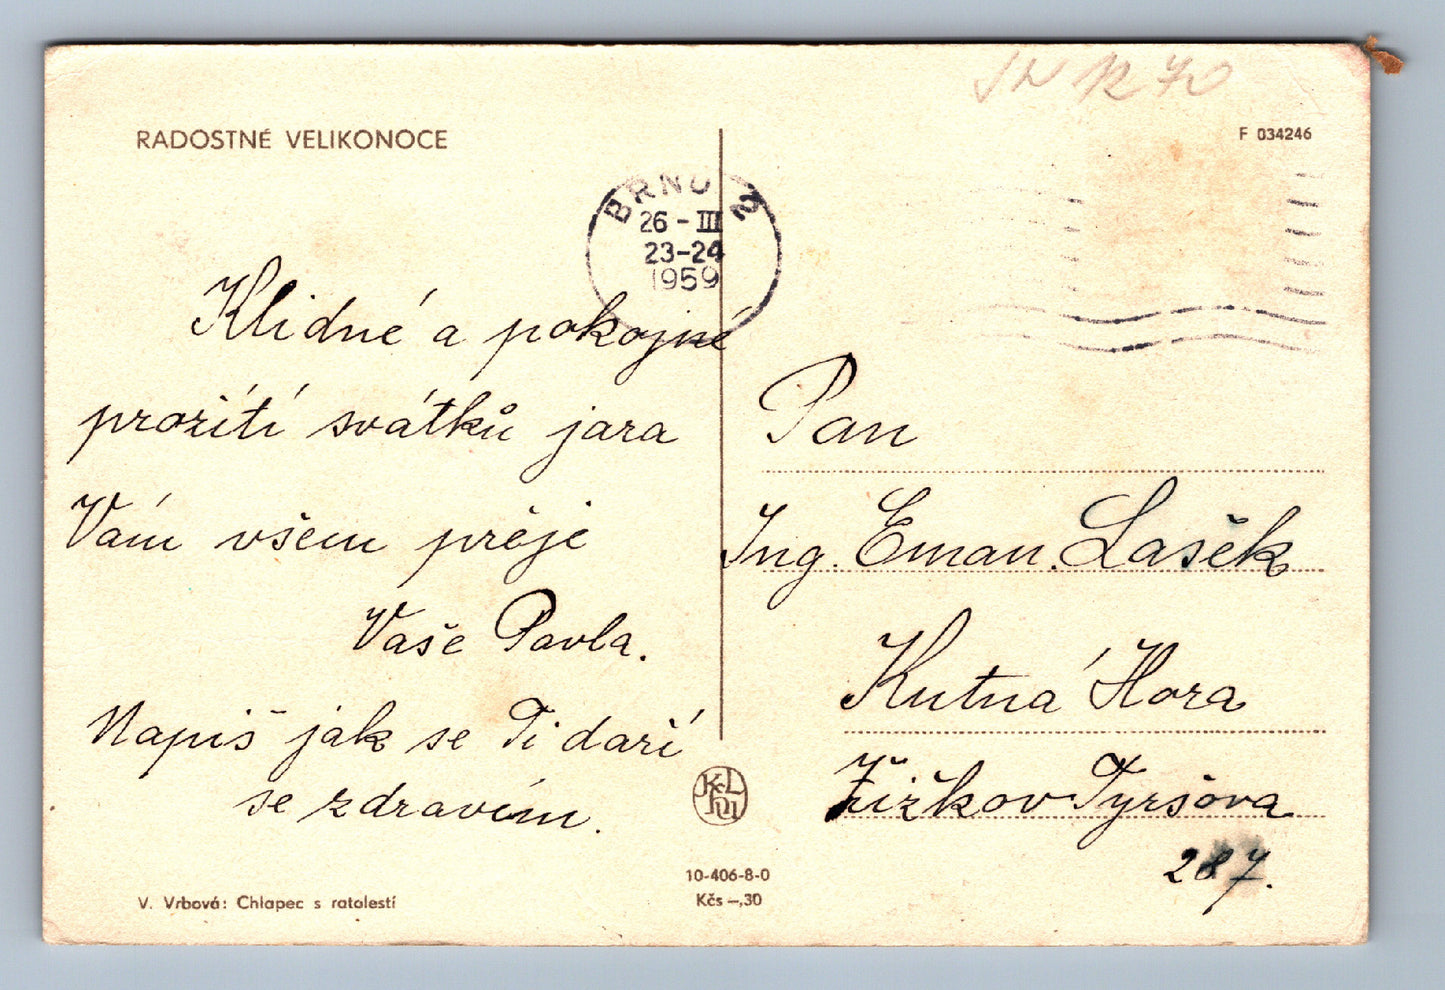 RADOSTNÉ VELIKONOCE
F 034246
BRNO 2
26 - III
23-24
1959
Klidné a pokojné
prožití svátků jara
Vám všem přeje
Vaše Pavla.
Napiš jak se Ti daří
se zdravím.
Pan
Ing. Eman. Lašěk
Kutná Hora
Žižkov Tyršova
287.
10-406-8-0
Kčs –,30
V. Vrbová: Chlapec s ratolestí